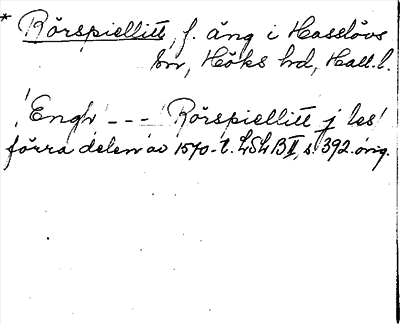 * Rörspiellitt, f. äng i Hasslövs
sn, Höks hd, Hall. l.
'Engh' --- 'Rörspiellitt j les'
förra delen av 1570-t. LSLB II, s. 392. orig.